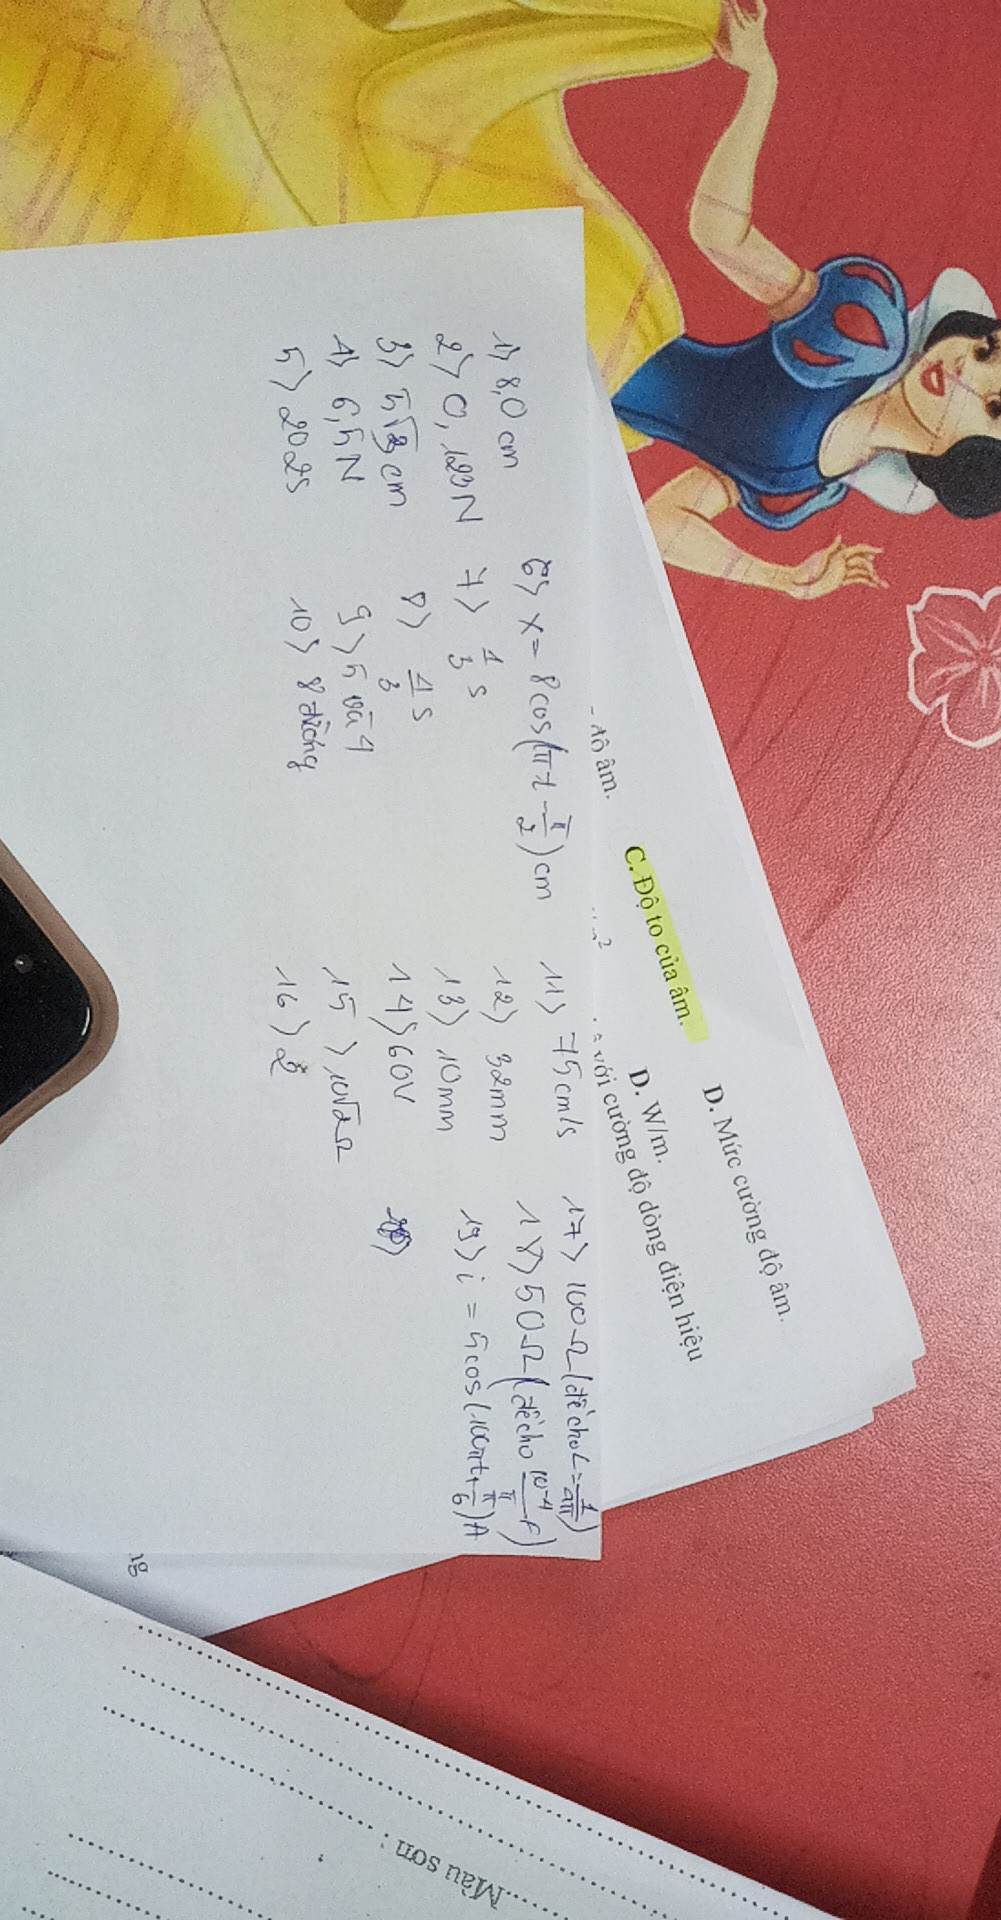 D. Mức cường độ âm.
C. Độ to của âm.
độ âm.
D. W/m.
với cường độ dòng điện hiệu
1> 8,0 cm
2> 0,123N
3> 5√3 cm
4> 6,5N
5> 2025
6> x = 8cos(πt - π/2) cm
7> 1/3 s
8> 4/3 s
9> 5 và 4
10> 8 đường
11> 75 cm/s
12> 32mm
13> 10mm
14> 60V
15> 10√2Ω
16> 2
17> 100Ω (đề cho L = 1/4π)
18> 50Ω (đề cho 10⁻⁴/π F)
19> i = 5cos(100πt + π/6) A
20>
Màu sơn: